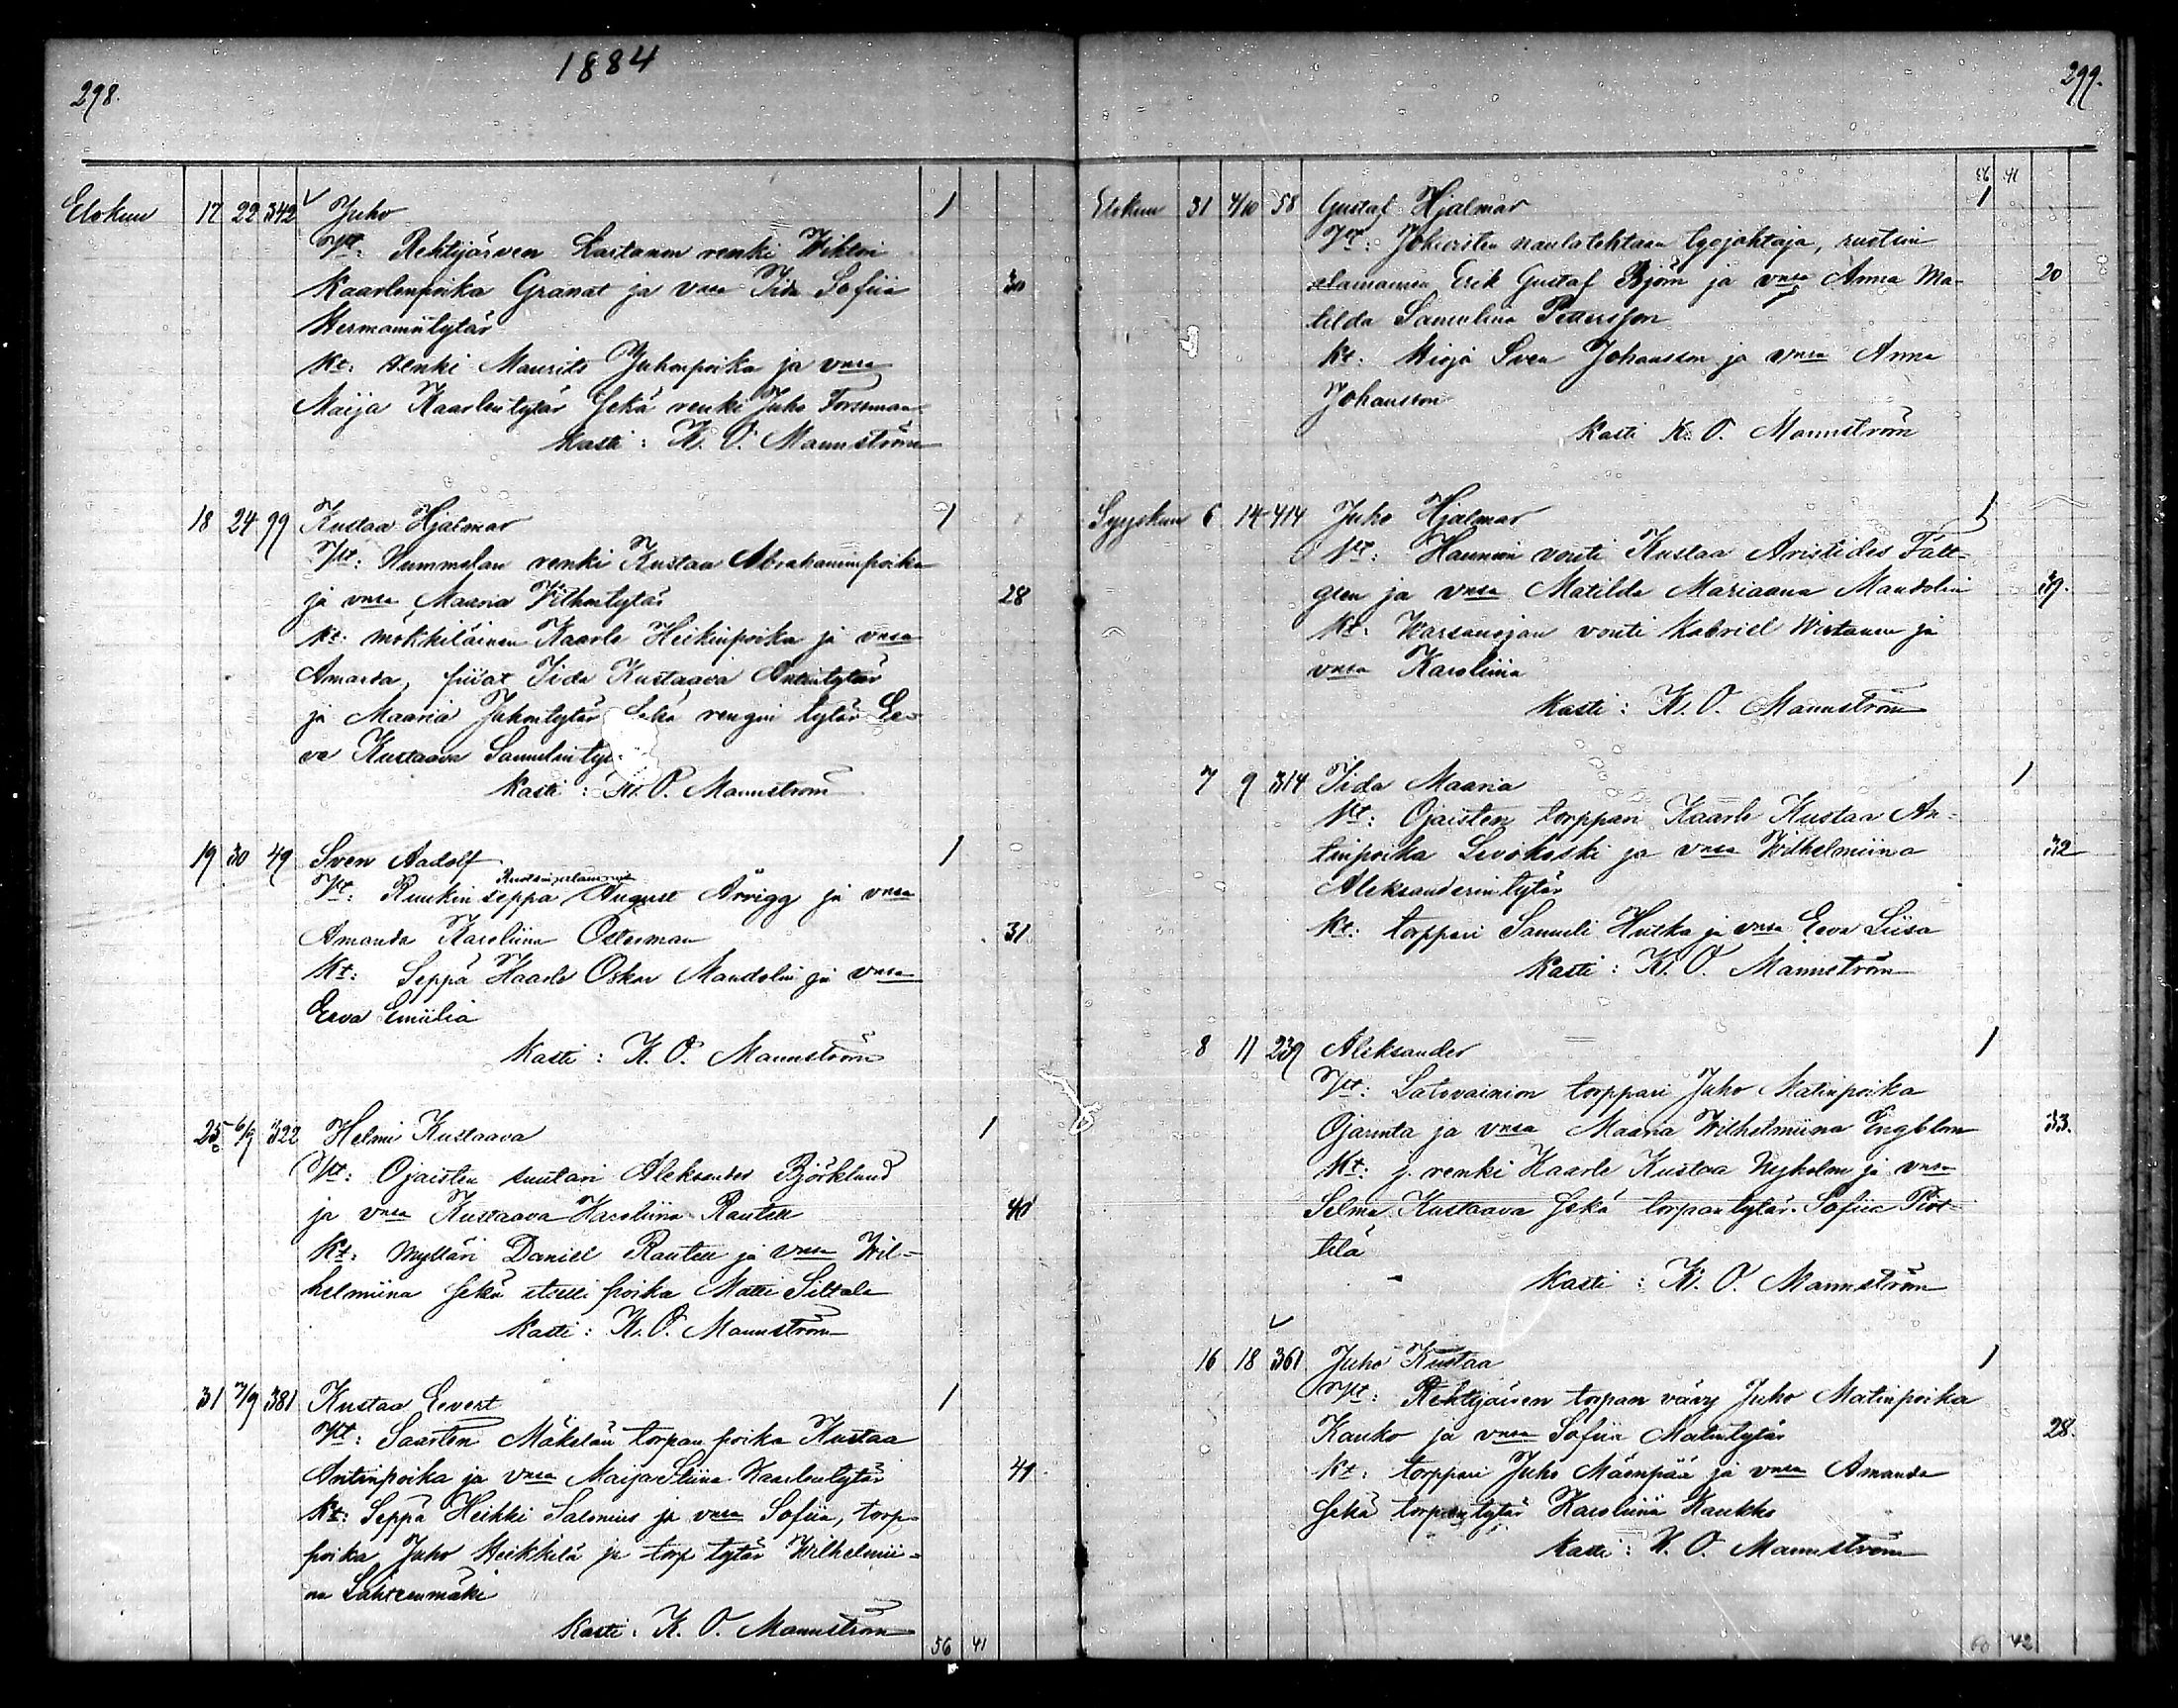 1884
298.
Elokuu 17 22 342 Juho 1
Vt: Rehtijärven Lastanen renki Wihtori
Kaarlenpoika Granat ja vmsa Iida Sofiia 30
Hermannintytär
Kt: renki Maurits Juhonpoika ja vmsa
Maija Kaarlentytär sekä renki Juho Forsman
Kasti: K. O. Mannström
18 24 99 Kustaa Hjalmar 1
Vt: Hummelan renki Kustaa Abrahaminpoika
ja vmsa Maria 28
Kt: mökkiläinen Kaarle Heikinpoika ja vmsa
Amanda, piiat Iida Kustaava Antintytär
ja Maaria Juhontytär sekä rengin tytär Ee-
va Kustaava Samulinty
Kasti: K. O. Mannström
19 30 49 Sven Aadolf 1
Ruotsinalamainen
Vt: Ruukin seppä August Arvigg ja vmsa
Amanda Karoliina Österman 31
Kt: Seppä Kaarle Oskar Mandolin ja vmsa
Eeva Emiilia
Kasti: K. O. Mannström
25 6/9 322 Helmi Kustaava 1
Vt: Ojaisten suutari Aleksander Björklund
ja vmsa Kustaava Karoliina Rautell 40
Kt: Mylläri Daniel Rautell ja vmsa Wil-
helmiina sekä itselli poika Matti Siltala
Kasti: K. O. Mannström
31 7/9 381 Kustaa Eevert 1
Vt: Saarten Mäkelän torpan poika Kustaa
Antinpoika ja vmsa Maija Stiina Kaarlentytär 41
Kt: Seppä Heikki Salonius ja vmsa Sofiia, torp-
poika Juho Heikkilä ja torp tytär Wilhelmii-
na Lähteenmäki
Kasti: K. O. Mannström
56 41
299.
56 41
Elokuu 31 4/10 58 Gustaf Hjalmar 1
Vt: Jokioisten naulatehtaan työjohtaja, ruotsin
alamainen Erik Gustaf Björn ja vmsa Anna Ma- 20
tilda Samulina Pettersson
Kt: Hioja Sven Johansson ja vmsa Anna
Johansson
Kasti K. O. Mannström
Syyskuu 6 14 414 Juho Hjalmar 1
Vt: Haunion vouti Kustaa Aristides Fält-
gren ja vmsa Matilda Mariaana Mandolin 39.
Kt: Warsanojan vouti Kabriel Wirtanen ja
vmsa Karoliina
Kasti: K. O. Mannström
7 9 314 Iida Maaria 1
Vt: Ojaisten torppari Kaarle Kustaa An-
tinpoika Levokoski ja vmsa Wilhelmiina 32
Aleksanderintytär
Kt: torppari Samuli Hutka ja vmsa Eeva Liisa
Kasti: K. O. Mannström
8 11 239 Aleksander 1
Vt: Latovainion torppari Juho Matinpoika
Ojaranta ja vmsa Maaria Wilhelmiina Engblom 33.
Kt: j. renki Kaarle Kustaa Nyholm ja vmsa
Selma Kustaava sekä torpan tytär Sofiia Piot-
tila
Kasti: K. O. Mannström
16 18 361 Juho Kustaa 1
Vt: Rehtijärven torpan vävy Juho Matinpoika
Kauko ja vmsa Sofiia Matintytär 28.
Kt: torppari Juho Mäenpää ja vmsa Amanda
sekä torpantytär Karoliina Kaukko
Kasti: K. O. Mannström
60 42